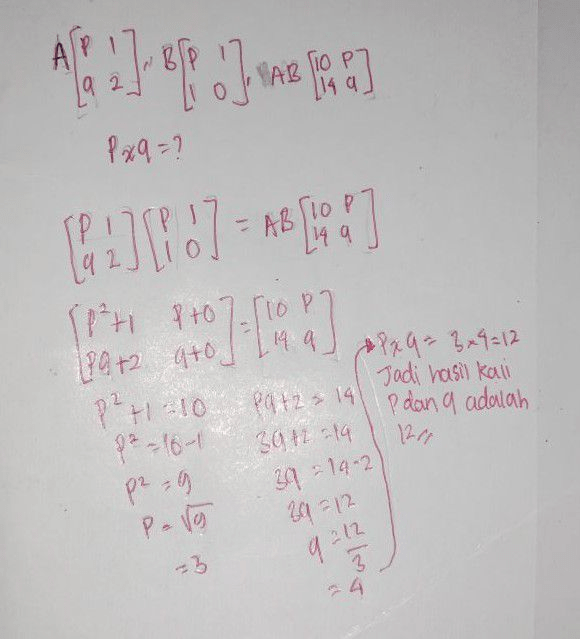 A[P 1 q 2], B[P 1 1 0], AB [10 P 14 q]
P x q = ?
[P 1 q 2] [P 1 1 0] = AB [10 P 14 q]
[P²+1 P+0 Pq+2 q+0] = [10 P 14 q]
P²+1 = 10
P² = 10-1
P² = 9
P = √9
= 3
Pq+2 = 14
3q+2 = 14
3q = 14-2
3q = 12
q = 12/3
= 4
P x q = 3 x 4 = 12
Jadi hasil kali
P dan q adalah
12 //